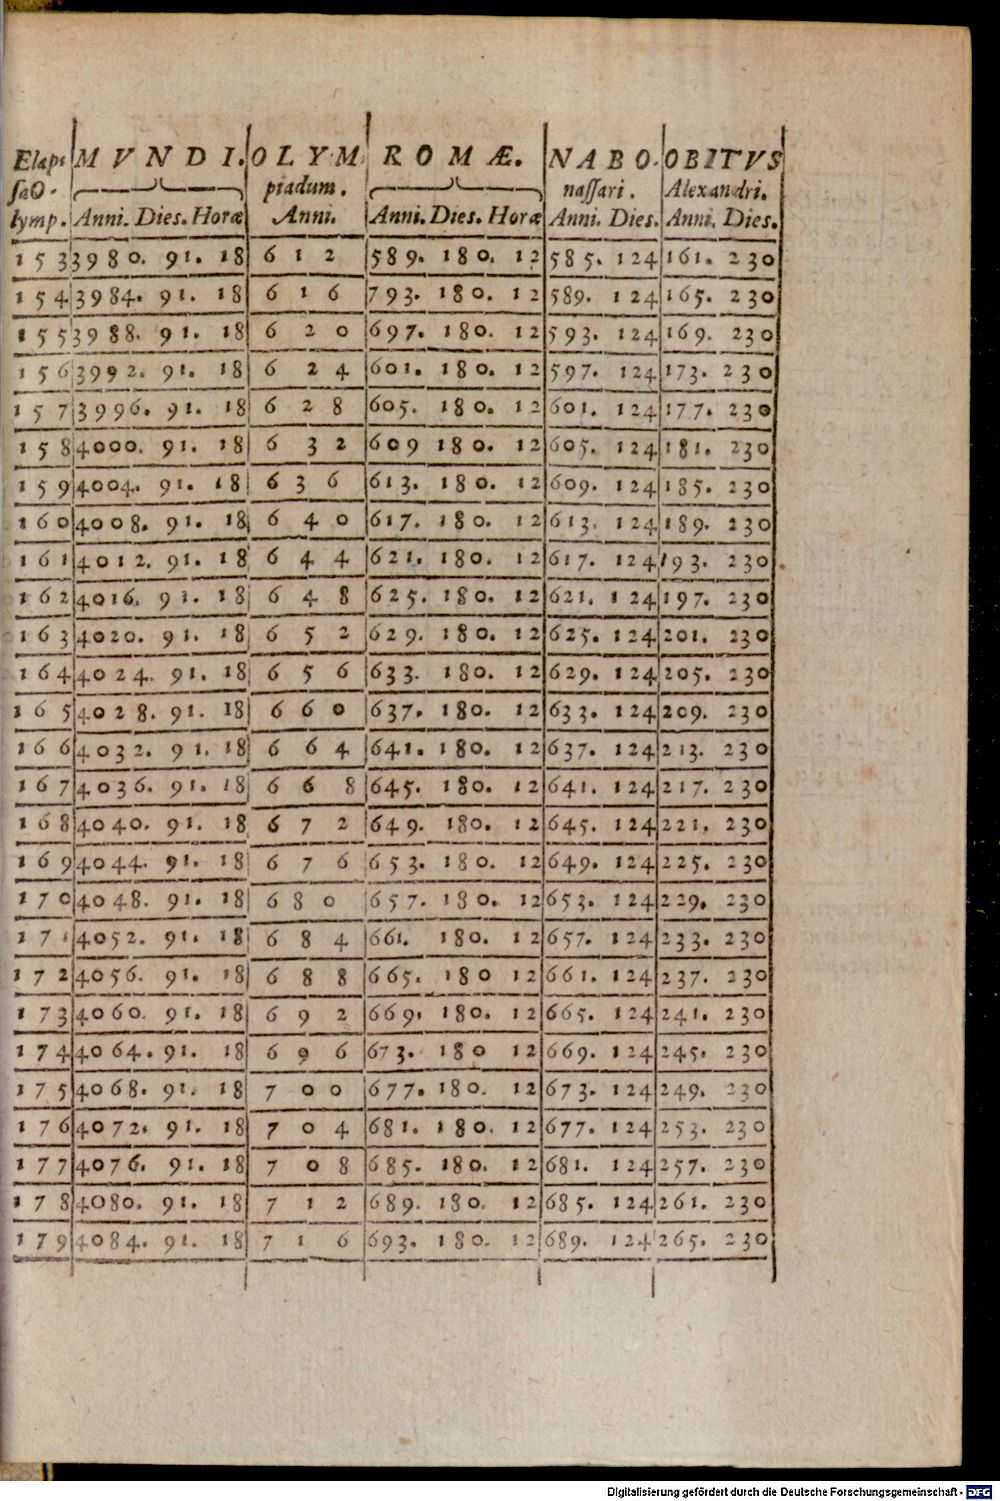 Elaps MVNDI. OLYM ROMÆ. NABO- OBITVS
saO- piadum. nassari. Alexandri.
lymp. Anni. Dies. Horæ Anni. Anni. Dies. Horæ Anni. Dies. Anni. Dies.
153 3980. 91. 18 612 589. 180. 12 585. 124 161. 230
154 3984. 91. 18 616 793. 180. 12 589. 124 165. 230
155 3988. 91. 18 620 697. 180. 12 593. 124 169. 230
156 3992. 91. 18 624 601. 180. 12 597. 124 173. 230
157 3996. 91. 18 628 605. 180. 12 601. 124 177. 230
158 4000. 91. 18 632 609 180. 12 605. 124 181. 230
159 4004. 91. 18 636 613. 180. 12 609. 124 185. 230
160 4008. 91. 18 640 617. 180. 12 613. 124 189. 230
161 4012. 91. 18 644 621. 180. 12 617. 124 193. 230
162 4016. 91. 18 648 625. 180. 12 621. 124 197. 230
163 4020. 91. 18 652 629. 180. 12 625. 124 201. 230
164 4024. 91. 18 656 633. 180. 12 629. 124 205. 230
165 4028. 91. 18 660 637. 180. 12 633. 124 209. 230
166 4032. 91. 18 664 641. 180. 12 637. 124 213. 230
167 4036. 91. 18 668 645. 180. 12 641. 124 217. 230
168 4040. 91. 18 672 649. 180. 12 645. 124 221. 230
169 4044. 91. 18 676 653. 180. 12 649. 124 225. 230
170 4048. 91. 18 680 657. 180. 12 653. 124 229. 230
17 4052. 91. 18 684 661. 180. 12 657. 124 233. 230
172 4056. 91. 18 688 665. 180 12 661. 124 237. 230
173 4060. 91. 18 692 669. 180. 12 665. 124 241. 230
174 4064. 91. 18 696 673. 180 12 669. 124 245. 230
175 4068. 91. 18 700 677. 180. 12 673. 124 249. 230
176 4072. 91. 18 704 681. 180. 12 677. 124 253. 230
177 4076. 91. 18 708 685. 180. 12 681. 124 257. 230
178 4080. 91. 18 712 689. 180. 12 685. 124 261. 230
179 4084. 91. 18 716 693. 180. 12 689. 124 265. 230
Digitalisierung gefördert durch die Deutsche Forschungsgemeinschaft - DFG